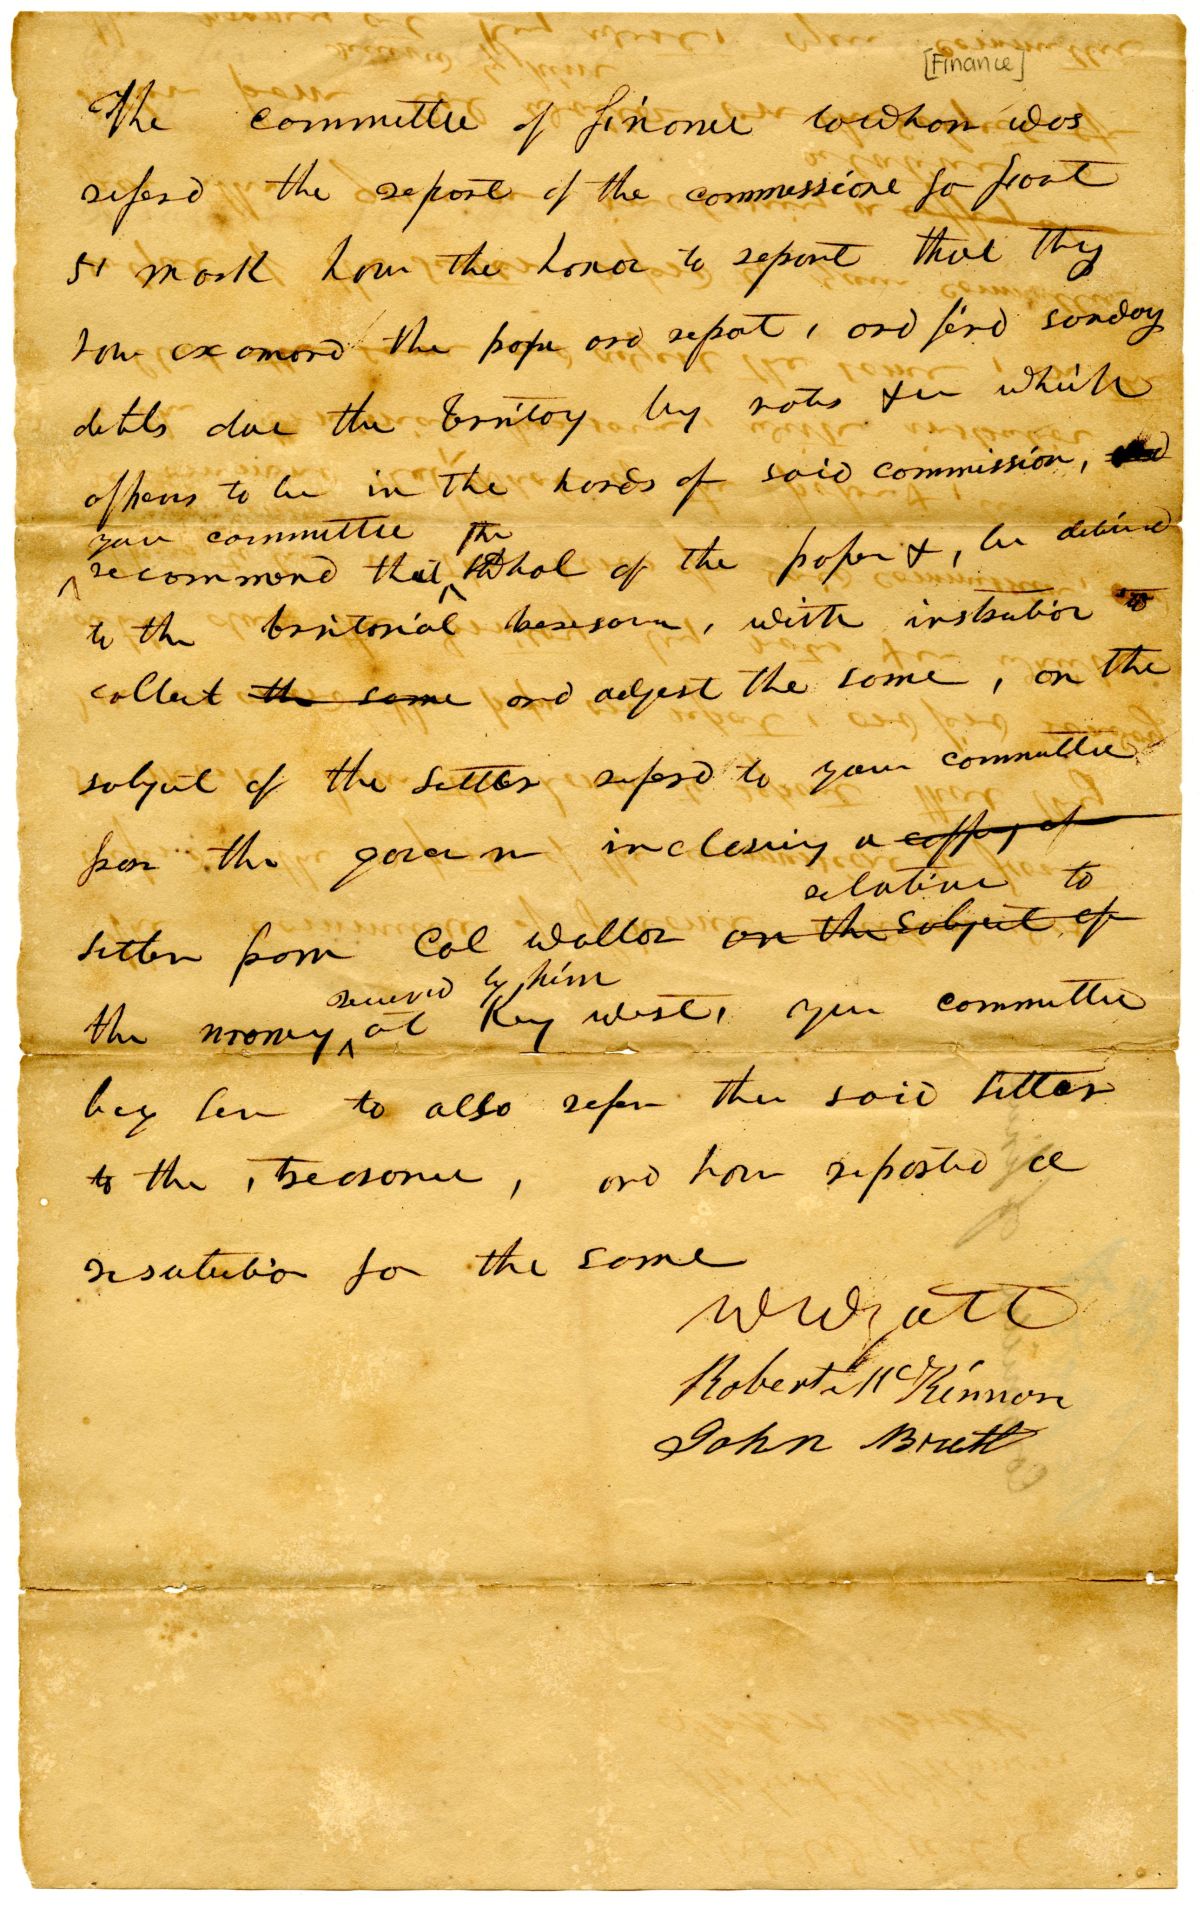 [Finance]
The committee of finance to whom was
referd the report of the commissione fo front
St mark have the honor to report that they
have examond the pape and report, and find sunday
debts due the Territory by notes &c which
appears to be in the hands of said commission,
your committee the
recommend that whol of the paper &, be delivrd
to the territorial tresesorer, with instruction to
collect the same and adjust the same, on the
subject of the letter referd to your committee
from the govern inclosing a coppy of
relative to
letter from Col Walton on the subject of
received by him
the money at Key west, your committee
beg leve to also refer the said letter
to the treasorer, and have reported a
resolution for the same
W Wyatt
Robert McKinnon
John Brett